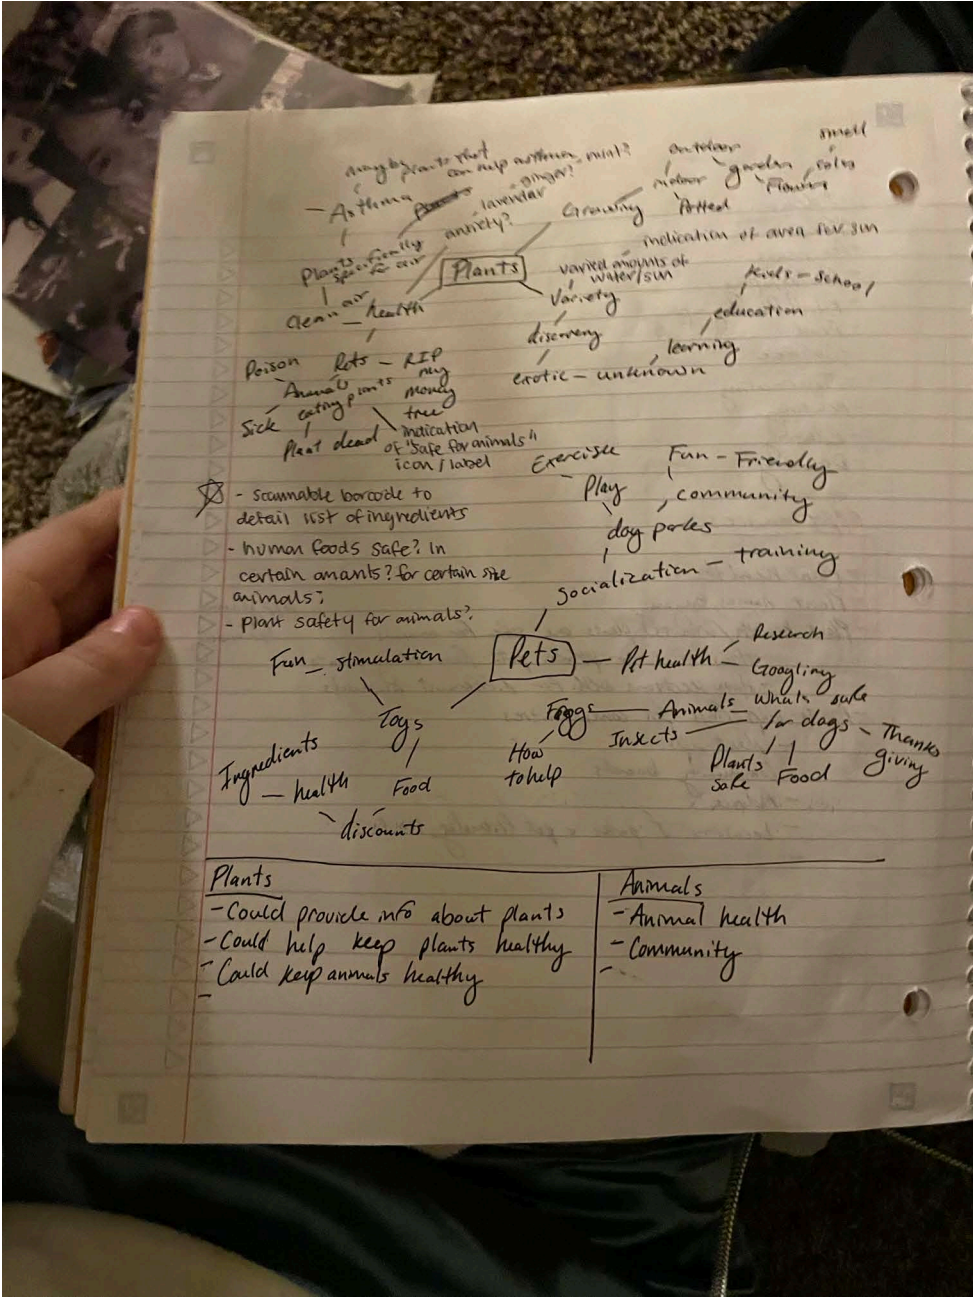 plants that
can help asthma, mint?
ginger?
lavender
- Asthma
anxiety?
Plants
specifically
for air
Clean air
- health
Plants
Growing
indoor
outdoor
garden
Potted
smell
indication of area for sun
varied amounts of
water/sun
Variety
discovery
exotic - unknown
learning
education
kids - school
Poison
Pets - RIP
my
money
tree
Animals
eating plants
Sick
Plant dead
indication
of "safe for animals"
icon/label
- scannable barcode to
detail list of ingredients
- human foods safe? In
certain amants? for certain size
animals?
- plant safety for animals?
Exercise
Play
Fun - Friendly
community
dog parks
socialization - training
Pets
Fun - stimulation
Toys
Ingredients
- health
Food
discounts
Pet health
Research
Googling
Animals
Insects
How
to help
Whats safe
for dogs
Thanks
giving
Plants
safe
Food
Plants
- Could provide info about plants
- Could help keep plants healthy
- Could keep animals healthy
-
Animals
- Animal health
- Community
-